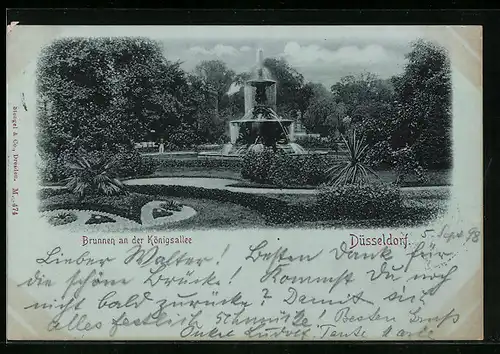 Stengel & Co., Dresden. M. 474
Brunnen an der Königsallee
Düsseldorf.
5. Sept. 98
Lieber Walter! Besten Dank für
die schöne Brücke! Kommst du noch
nicht bald zurücke? Damit sich
alles festlich schmücke! Besten Gruß
Onkel Ludolf. Tante